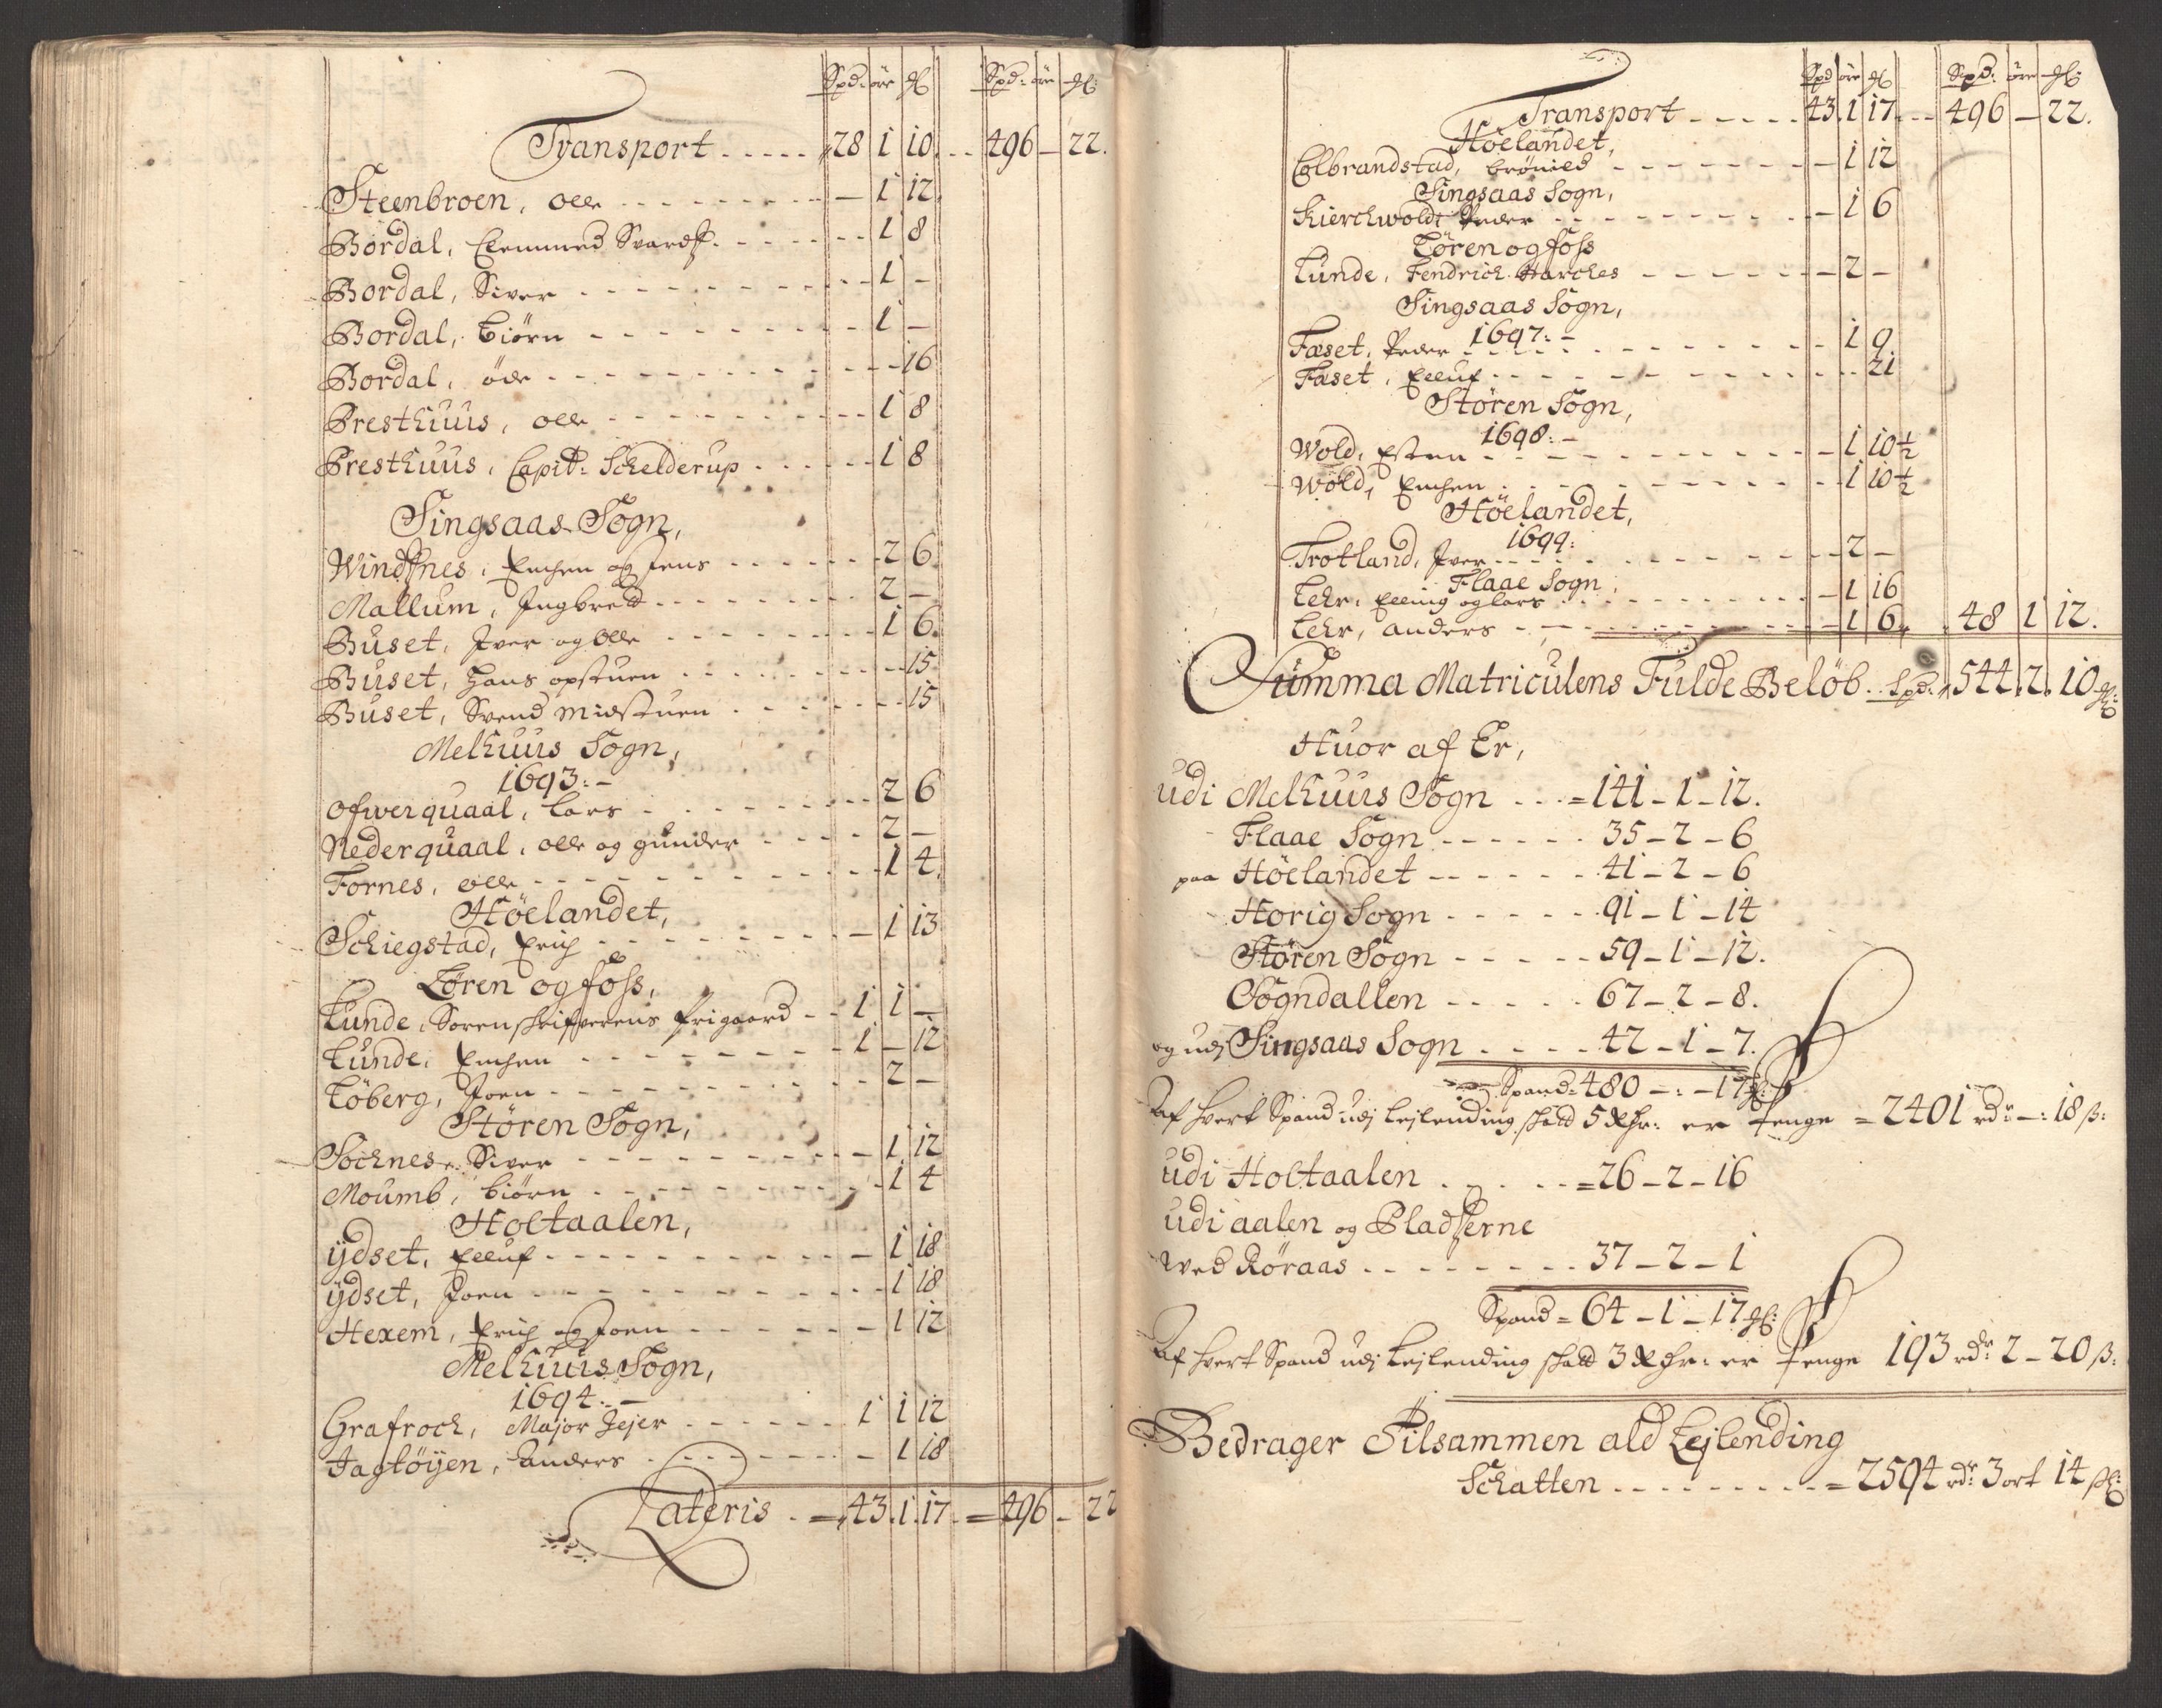 Spd: öre Spd: öre
Transport . . . . . 28 1 10. . . 496 – 22.
Steenbroen, Olle . . . – 1 12.
Bordal, Clemmed Svard . . . 1 8
Bordal, Siver . . . 1 –
Bordal, Biörn . . . 1 –
Bordal, öde . . . 16
Presthuus, Olle . . . 1 8
Presthuus, Capit: Schelderup . . . 1 8
Singsaas Sogn,
Windsnes, Enchen og Jens . . . 2 6
Mallum, Ingbret . . . 2 –
Buset, Iver og Olle . . . 1 6.
Buset, Hans opstuen . . . 15
Buset, Svend Midstuen . . . 15
Melhuus Sogn,
1693: –
Ofwerquaal, Lars . . . 2 6
Nederquaal, Olle og gunder . . . 2 –
Fornes, Olle . . . 1 4.
Höelandet,
Schiegstad, Erich . . . – 1 13
Lören og foss,
Lunde, Sorenskrifverens frigaard . . 1 1 –
Lunde, Enchen . . . 1 – 12
Löberg, Joen . . . 2 –
Stören Sogn,
Sochnes, Siver . . . – 1 12
Moumb, Biörn . . . 1 4
Holtaalen,
ÿdset, Elluf . . . – 1 18
ÿdset, Joen . . . 1 18
Hexem, Erich og Joen . . . – 1 12
Melhuus Sogn,
1694: –
Grafroch, Major Jejer . . . 1 1 12
Jagtöyen, Anders . . . – 1 18
Lateris . = 43. 1. 17. = 496 – 22
Spd öre Spd: öre
Transport . . . . . 43. 1 17. . . 496 – 22.
Höelandet,
Colbrandstad, Brönild . . . – 1 12
Singsaas Sogn,
Kierchwold, Peder . . . – 1 6
Lören og foss
Lunde, Fendrich Harches . . . – 2 –
Singsaas Sogn,
1697: –
Fæset, Peder . . . – 1 9
Fæset, Elluf . . . 21
Stören Sogn,
1698: –
Wold, Esten . . . – 1 10½
Wold, Enchen . . . 1 10½
Höelandet,
1699:
Trotland, Iver . . . – 2 –
Flaae Sogn,
Lehr, Elling og Lars . . . – 1 16
Lehr, Anders . . . – 1 6. . 48 1 12.
Summa Matriculens Fulde Belöb. . Spd: 544. 2. 10
Huor af Er,
udi Melhuus Sogn . . . = 141 – 1 – 12.
Flaae Sogn . . . 35 – 2 – 6
paa Höelandet . . . 41 – 2 – 6
Horig Sogn . . . 91 – 1 – 14
Stören Sogn . . . 59 – 1 – 12.
Sogndallen . . . 67 – 2 – 8.
og udj Singsaas Sogn . . . 42 – 1 – 7.
Spand = 480 – : – 17
Af hvert Spand udj Lejlending skatt 5 Rdr: er Penge = 2401 rdr – : 18 ß:
udi Holtaalen . . . = 26 – 2 – 16
udi aalen og Pladserne
wed Röraas . . . 37 – 2 – 1
Spand = 64 – 1 – 17
Af hvert Spand udj Lejlending skatt 3 Rdr: er Penge 193 rdr: 2 – 20 ß:
Bedrager Tilsammen ald Lejlending
Schatten . . . = 2594 rdr: 3 ort 14 ß: